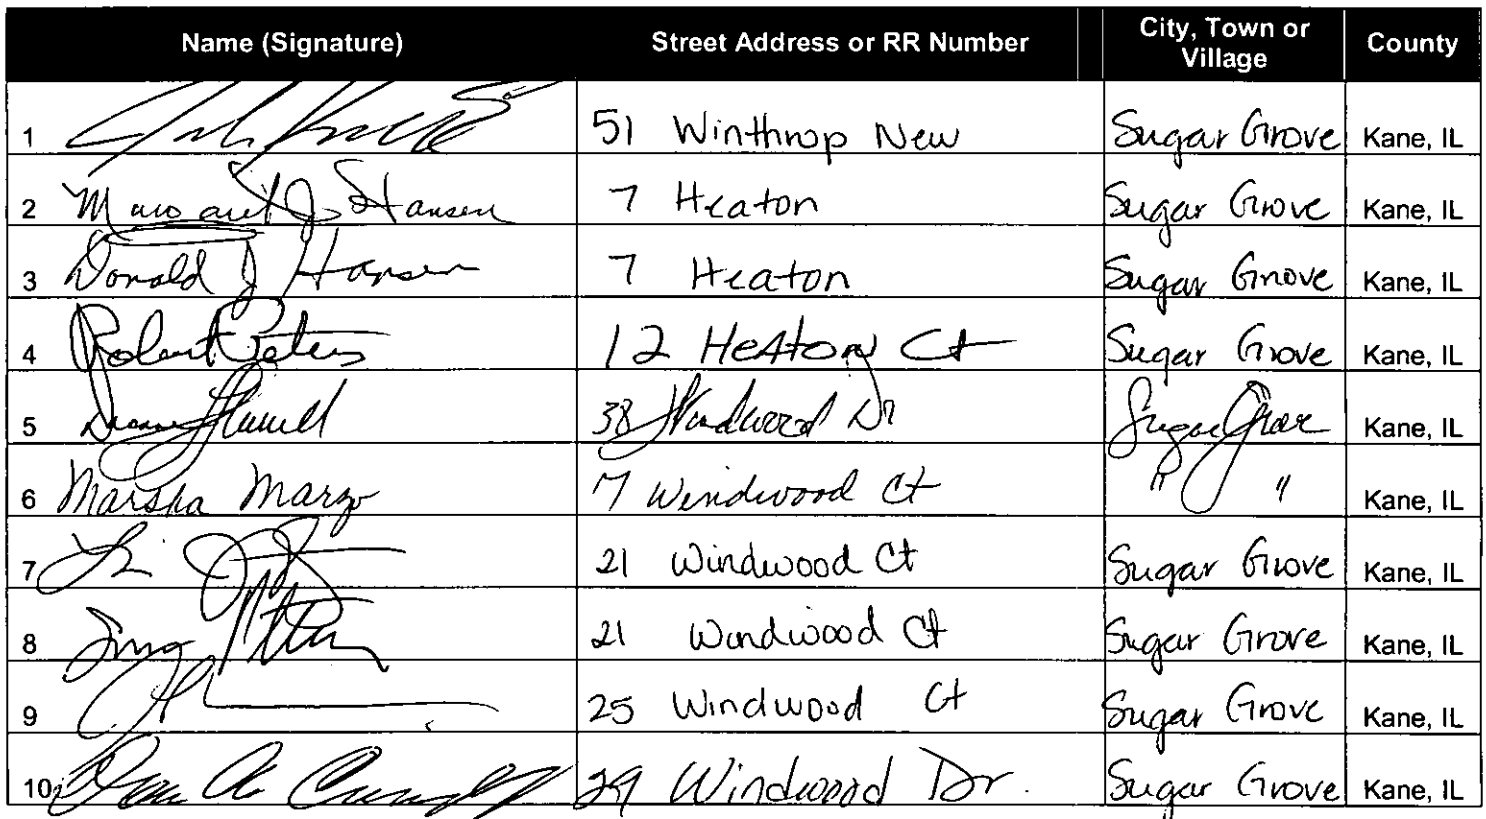 Name (Signature) Street Address or RR Number City, Town or Village County
1 51 Winthrop New Sugar Grove Kane, IL
2 Margaret J Hansen 7 Heaton Sugar Grove Kane, IL
3 Donald J Hansen 7 Heaton Sugar Grove Kane, IL
4 Robert Peters 12 Heaton Ct Sugar Grove Kane, IL
5 38 Windwood Dr Sugar Grove Kane, IL
6 Marsha Marzo 7 Windwood Ct " " Kane, IL
7 21 Windwood Ct Sugar Grove Kane, IL
8 21 Windwood Ct Sugar Grove Kane, IL
9 25 Windwood Ct Sugar Grove Kane, IL
10 29 Windwood Dr. Sugar Grove Kane, IL